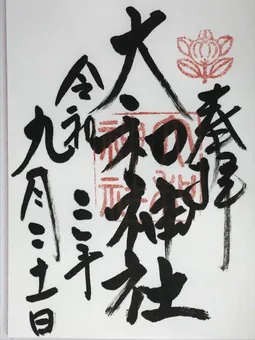 奉拝
大和神社
令和三年
九月二十一日